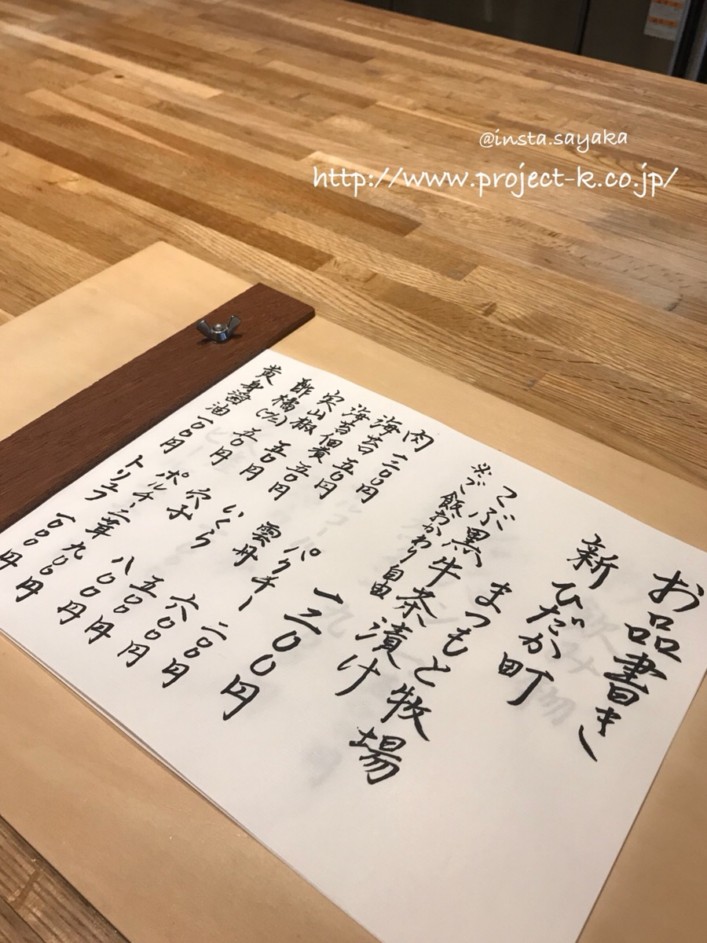 @insta.sayaka
http://www.project-k.co.jp/
お品書き
新ひだか町
まつもと牧場
つぶ黒牛茶漬け
一二〇〇円
※づご飯おかわり自由
肉 三〇〇円
海苔 五〇円
海苔佃煮 五〇円
実山椒 五〇円
酢橘(1/2) 五〇円
黄身醤油 一〇〇円
パクチー 二〇〇円
雲丹 六〇〇円
いくら 五〇〇円
穴子 八〇〇円
ポルチーニ茸 九〇〇円
トリュフ 一〇〇〇円